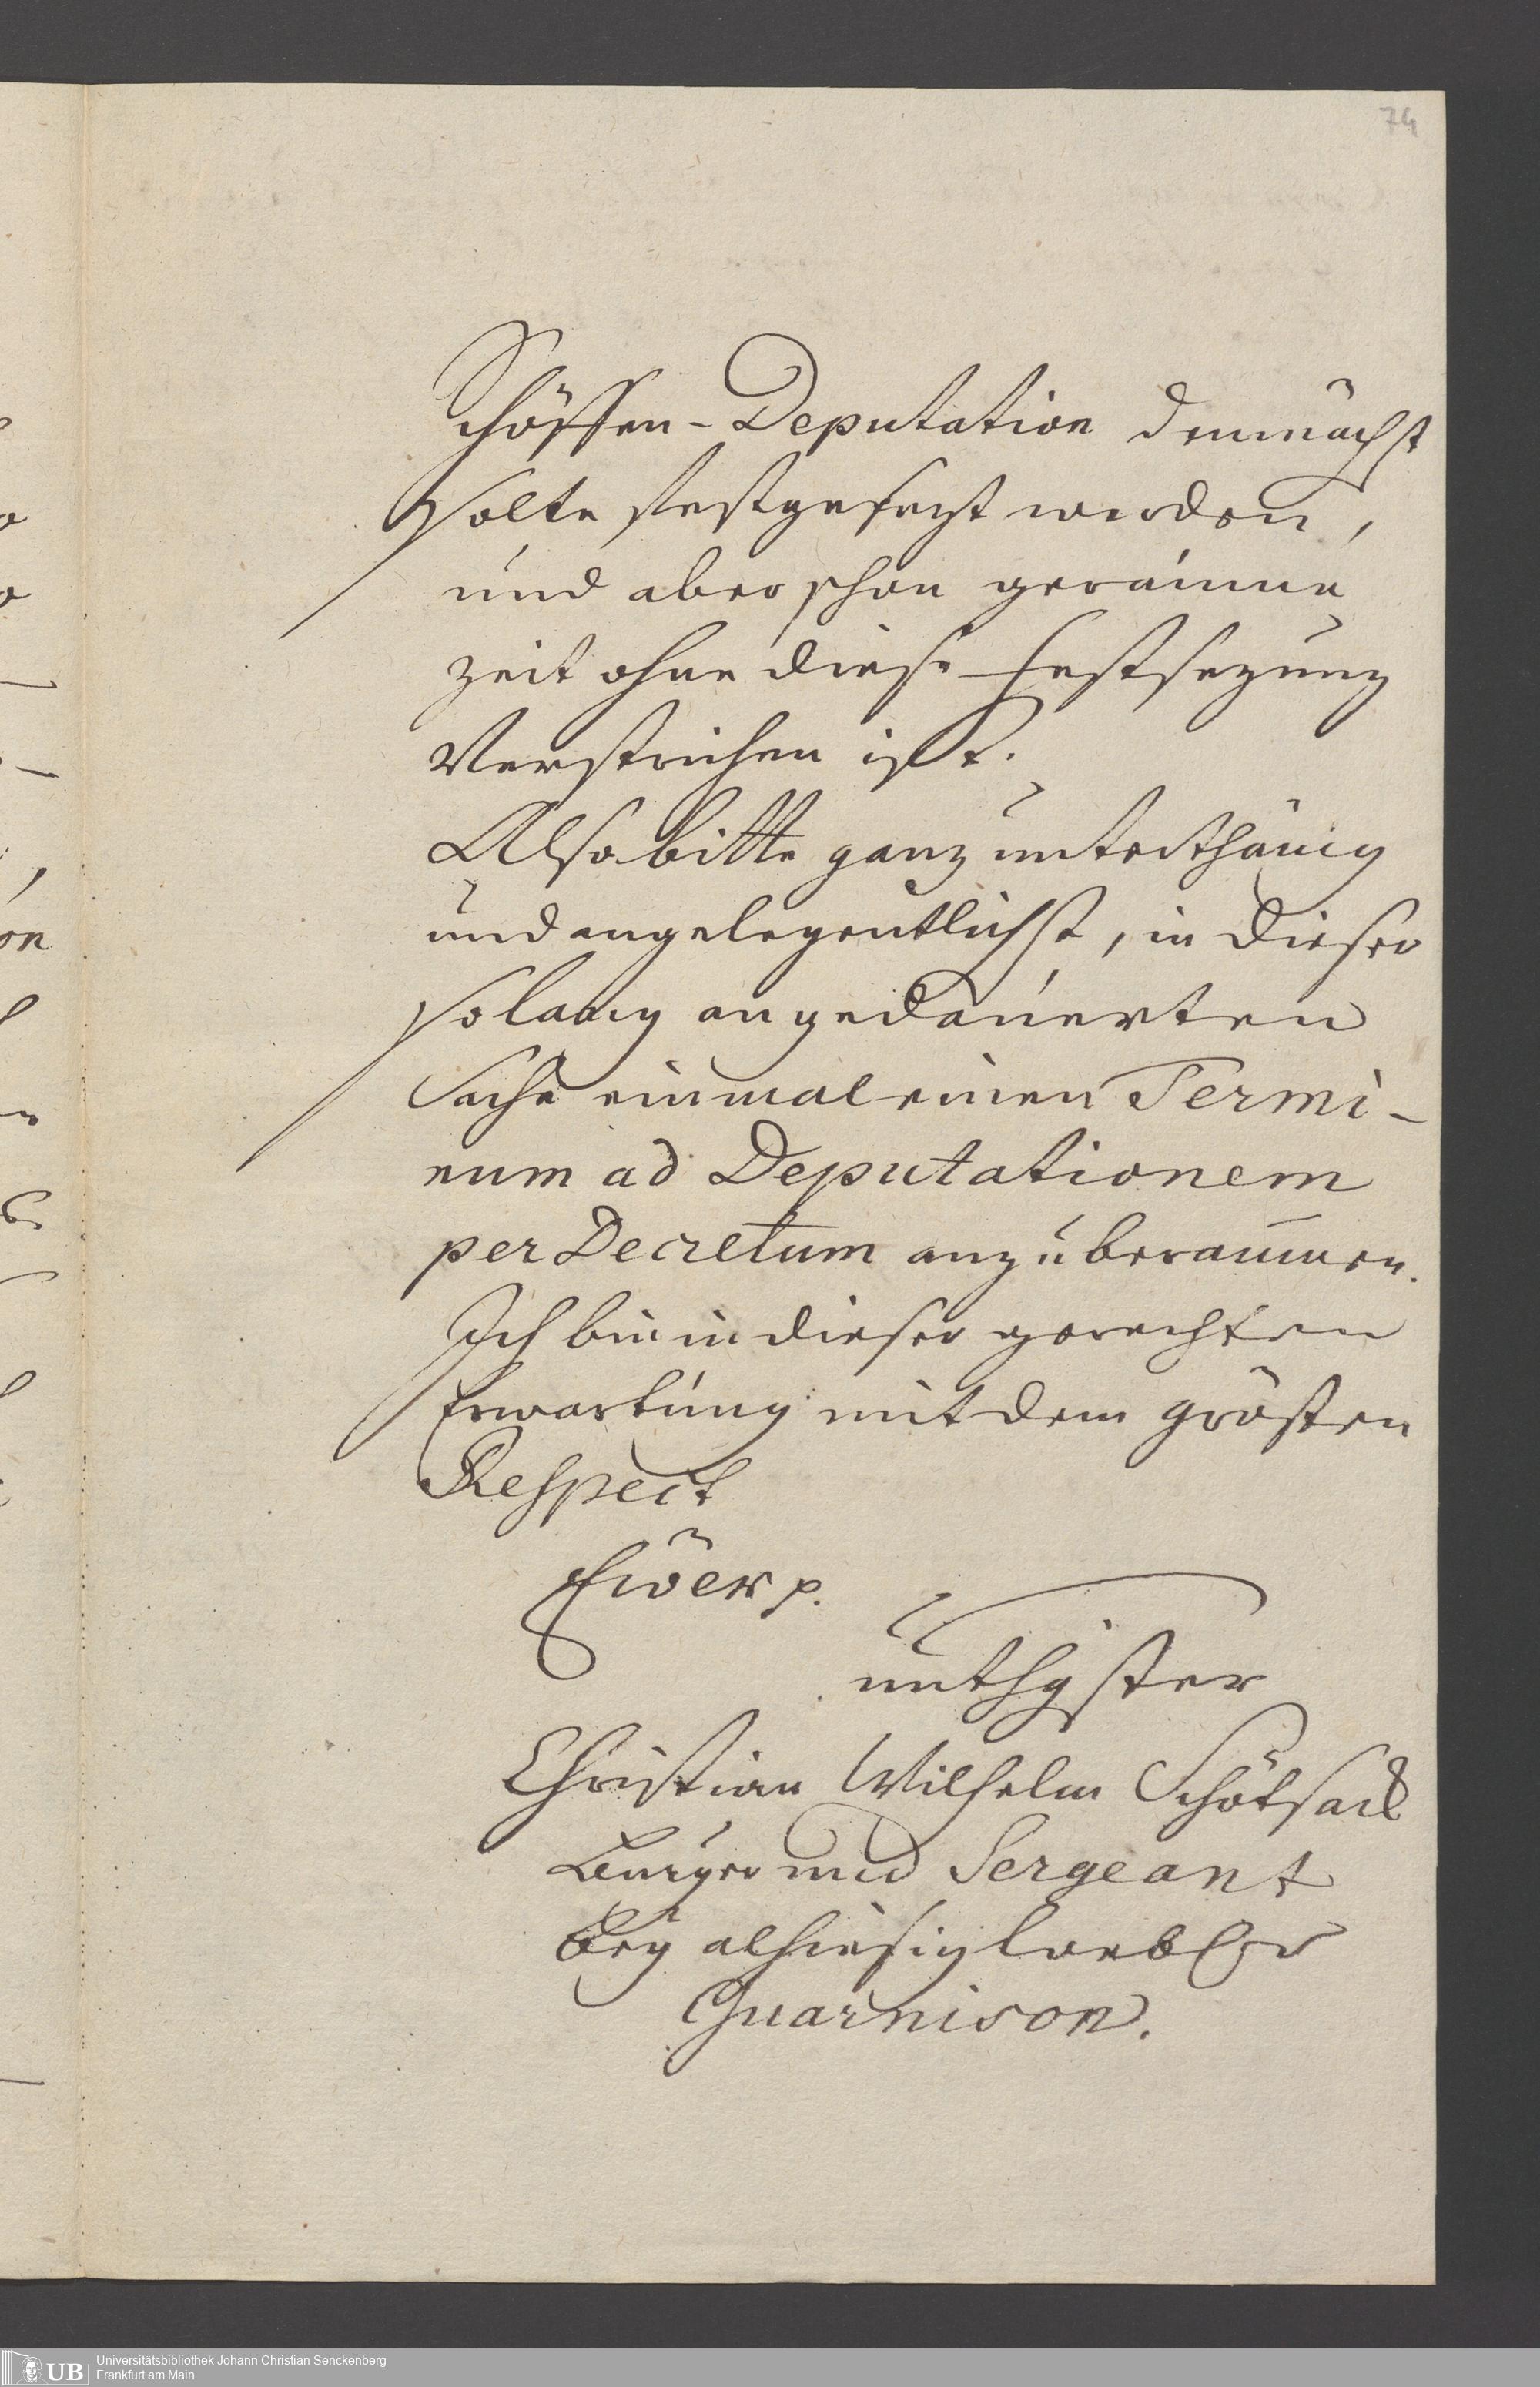 74
Schöffen-Deputation demnächst
solte festgesezt werden,
und aber schon geraume
zeit ohne diese Festsezung
Verstrichen ist.
Also bitte ganz unterthänig
und angelegentlichst, in dieser
so lang angedauerten
Sache einmal einen Termi-
num ad Deputationem
per Decretum anzuberaumen.
Ich bin in dieser gerechten
Erwartung mit dem grösten
Respect
Euer p.
unthgster
Christian Wilhelm
Burger und Sergeant
bey alhiesig loebler
Guarnison.
UB Universitätsbibliothek Johann Christian Senckenberg
Frankfurt am Main